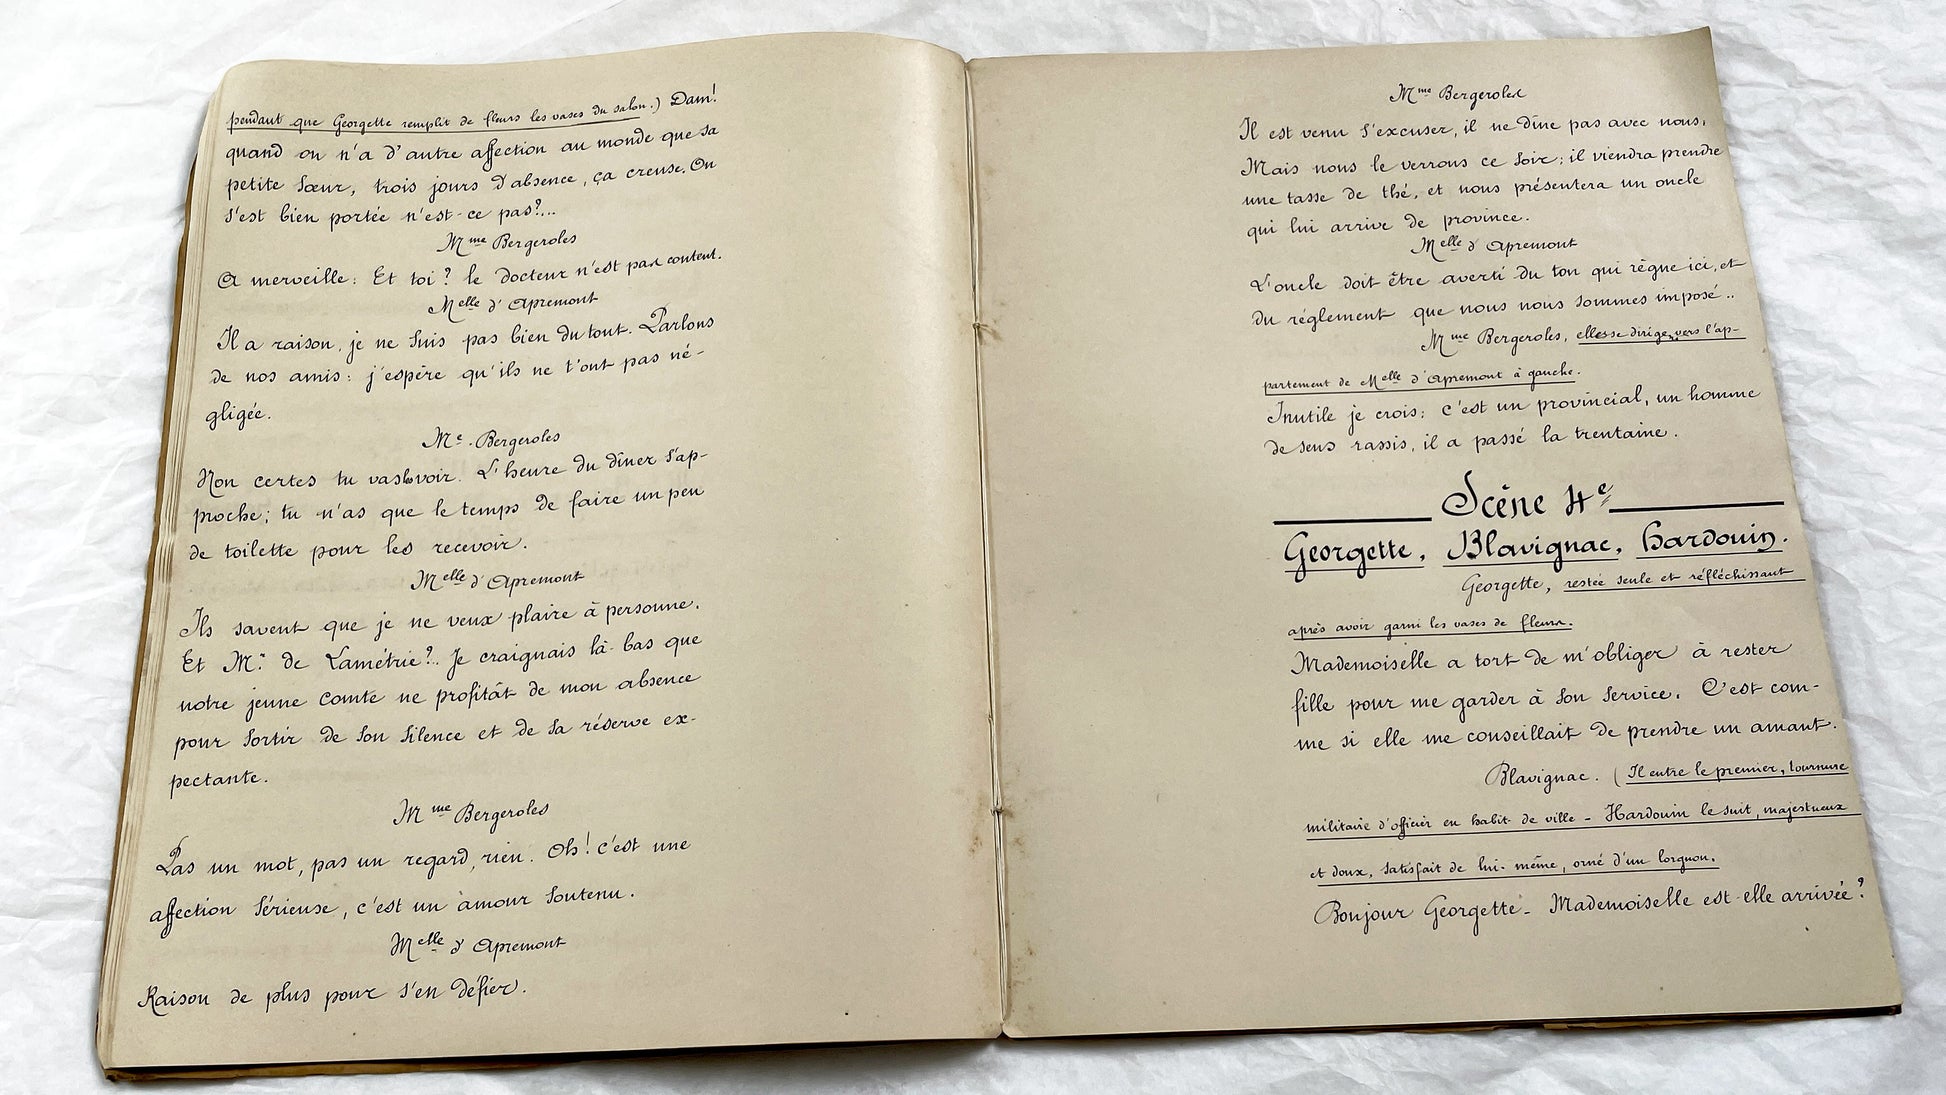 pendant que Georgette remplit de fleurs les vases du salon.) Dam!
quand on n'a d'autre affection au monde que sa
petite sœur, trois jours d'absence, ça creuse. On
s'est bien portée n'est-ce pas?...
Mme Bergeroles
A merveille: Et toi? le docteur n'est pas content.
Melle d'Apremont
Il a raison, je ne suis pas bien du tout. Parlons
de nos amis: j'espère qu'ils ne t'ont pas né-
gligée.
Me. Bergeroles
Non certes tu vas les voir. L'heure du dîner s'ap-
proche; tu n'as que le temps de faire un peu
de toilette pour les recevoir.
Melle d'Apremont
Ils savent que je ne veux plaire à personne.
Et Mr. de Lamétrie?.. Je craignais là-bas que
notre jeune comte ne profitât de mon absence
pour sortir de son silence et de sa réserve ex-
pectante.
Mme Bergeroles
Pas un mot, pas un regard, rien. Oh! c'est une
affection sérieuse, c'est un amour soutenu.
Melle d'Apremont
Raison de plus pour s'en défier.
Mme Bergeroles
Il est venu s'excuser, il ne dîne pas avec nous,
Mais nous le verrons ce soir; il viendra prendre
une tasse de thé, et nous présentera un oncle
qui lui arrive de province.
Melle d'Apremont
L'oncle doit être averti du ton qui règne ici, et
du réglement que nous nous sommes imposé..
Mme Bergeroles, elle se dirige vers l'ap-
partement de Melle d'Apremont à gauche.
Inutile je crois; c'est un provincial, un homme
de sens rassis, il a passé la trentaine.
Scène 4e
Georgette, Blavignac, Hardouin.
Georgette, restée seule et réfléchissant
après avoir garni les vases de fleurs.
Mademoiselle a tort de m'obliger à rester
fille pour me garder à son service. C'est com-
me si elle me conseillait de prendre un amant.
Blavignac. (Il entre le premier, tournure
militaire d'officier en habit de ville - Hardouin le suit, majestueux
et doux, satisfait de lui-même, orné d'un lorgnon.
Bonjour Georgette - Mademoiselle est-elle arrivée?